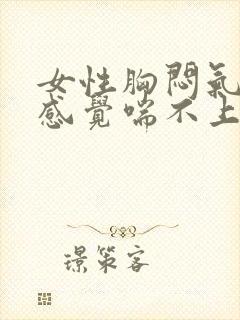 女性胸悶氣
感覺喘不上
璟策客